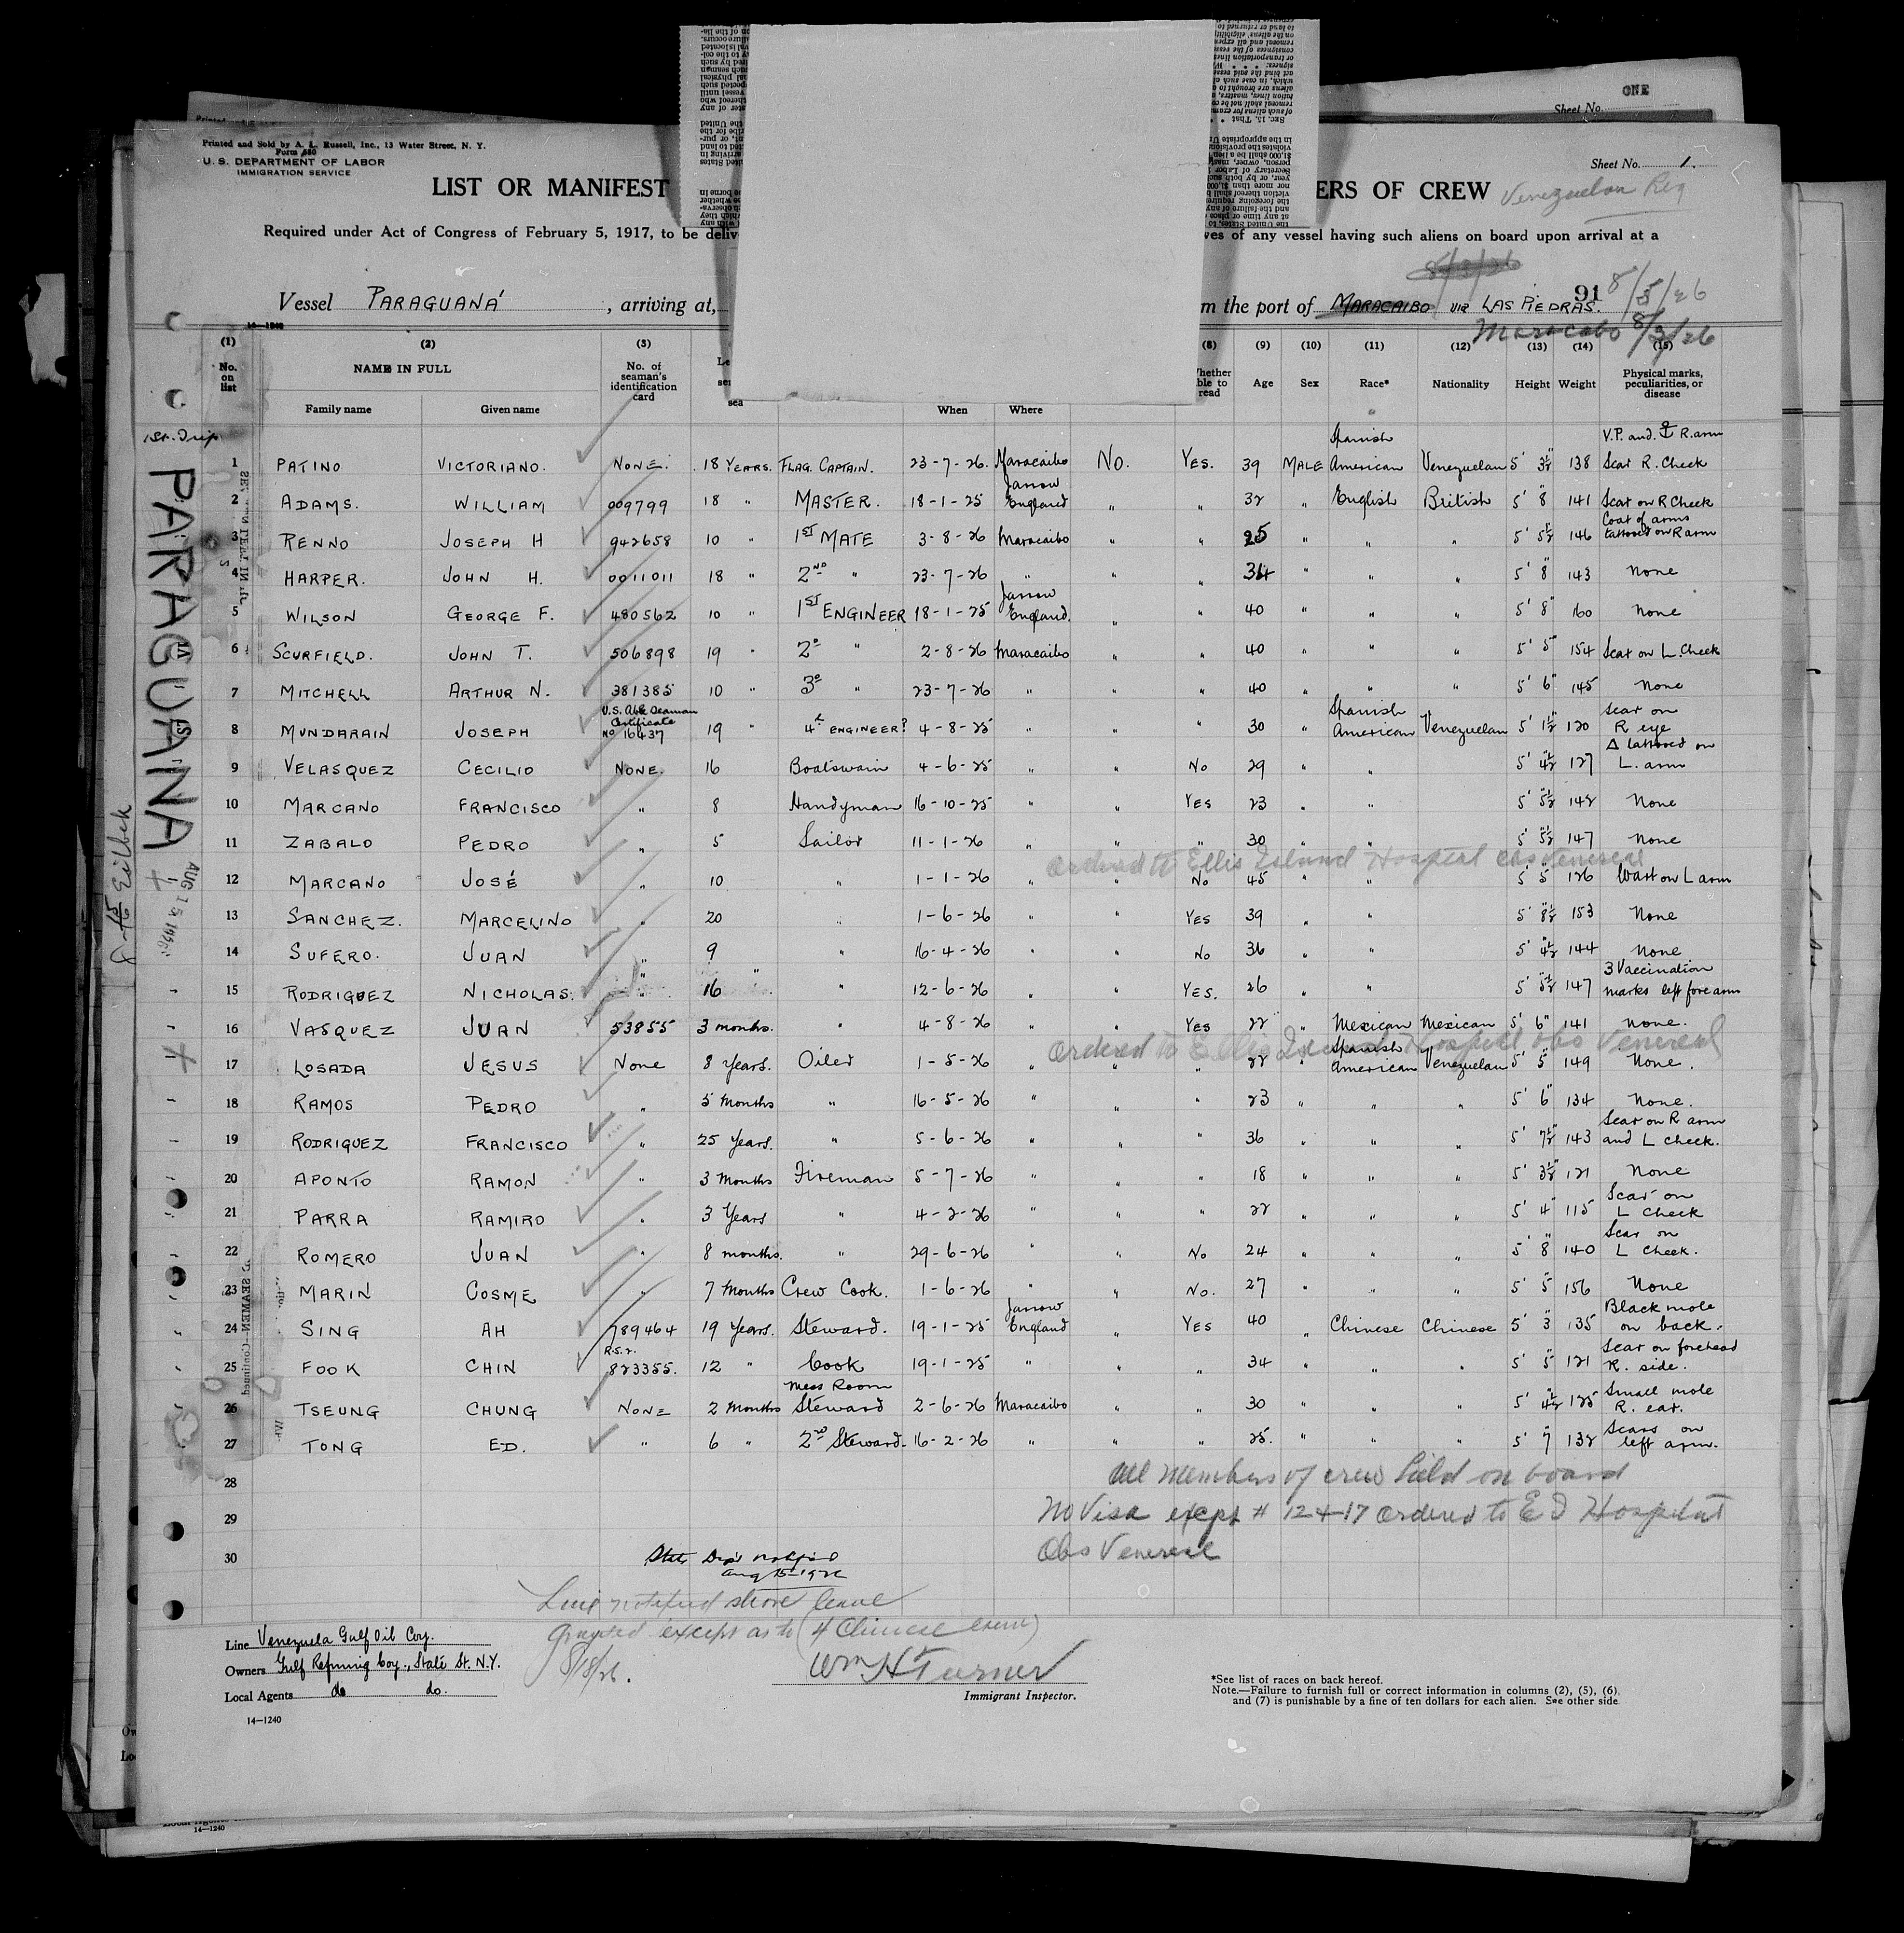 ONE
Sheet No.
Printed and Sold by A. L. Russell, Inc., 13 Water Street, N. Y.
Form 680
U. S. DEPARTMENT OF LABOR
IMMIGRATION SERVICE
Sheet No. 1.
LIST OR MANIFEST ERS OF CREW Venezuelan Reg
Required under Act of Congress of February 5, 1917, to be deliv ves of any vessel having such aliens on board upon arrival at a
8/3/26
Vessel PARAGUANÁ, arriving at, m the port of MARACAIBO VIA LAS PIEDRAS. 91 8/5/26
Maracabo 8/3/26
14—1240
(1) (2) (3) (8) (9) (10) (11) (12) (13) (14) (15)
No. on list NAME IN FULL No. of seaman's identification card Age Sex Race* Nationality Height Weight Physical marks, peculiarities, or disease
Family name Given name sea When Where read
1st Trip
1 PATINO VICTORIANO. NONE. 18 YEARS. FLAG. CAPTAIN. 23-7-26. Maracaibo No. YES. 39 MALE Spanish American Venezuelan 5' 3½" 138 V.P. and ⚓ R. arm Scar R. Cheek
2 ADAMS. WILLIAM 009799 18 " MASTER. 18-1-25 Jarrow England " " 32 " English British 5' 8" 141 Scar on R Cheek
3 RENNO JOSEPH H 942658 10 " 1ST MATE 3-8-26 Maracaibo " " 25 " " " 5' 5½" 146 Coat of arms tattooed on R arm
4 HARPER. JOHN H. 0011011 18 " 2ND " 23-7-26 " " " 34 " " " 5' 8" 143 None
5 WILSON GEORGE F. 480562 10 " 1ST ENGINEER 18-1-25 Jarrow England. " " 40 " " " 5' 8" 160 None
6 SCURFIELD. JOHN T. 506898 19 " 2° " 2-8-26 Maracaibo " " 40 " " " 5' 5" 154 Scar on L. Cheek
7 MITCHELL ARTHUR N. 381385 10 " 3° " 23-7-26 " " " 40 " " " 5' 6" 145 None
8 MUNDARAIN JOSEPH U.S. Able Seaman Certificate No 16437 19 " 4th ENGINEER? 4-8-25 " " " 30 " Spanish American Venezuelan 5' 1½" 120 Scar on R eye
9 VELASQUEZ CECILIO NONE. 16 Boatswain 4-6-25 " " No 29 " " 5' 4½" 127 Δ tattooed on L. arm
10 MARCANO FRANCISCO " 8 Handyman 16-10-25 " " YES 23 " " 5' 5½" 142 None
11 ZABALO PEDRO " 5 Sailor 11-1-26 " " " 30 " " 5' 5½" 147 None
Ordered to Ellis Island Hospital obs Venereal
12 MARCANO JOSÉ " 10 " 1-1-26 " " No 45 " " 5' 5" 126 Wart on L arm
13 SANCHEZ. MARCELINO " 20 " 1-6-26 " " YES 39 " " 5' 8½" 153 None
14 SUFERO. JUAN " 9 " 16-4-26 " " No 36 " " 5' 4½" 144 None
15 RODRIGUEZ NICHOLAS. " 16 " " 12-6-26 " " YES. 26 " " 5' 5½" 147 3 Vaccination marks left forearm
16 VASQUEZ JUAN 53855 3 months. " 4-8-26 " " Yes 22 " Mexican Mexican 5' 6" 141 None.
Ordered to Ellis Island Hospital obs Venereal
17 LOSADA JESUS None 8 Years. Oiler 1-5-26 " " " 22 " Spanish American Venezuelan 5' 5" 149 None.
18 RAMOS PEDRO " 5 Months " 16-5-26 " " " 23 " " " 5' 6" 134 None.
19 RODRIQUEZ FRANCISCO " 25 Years. " 5-6-26 " " " 36 " " " 5' 7½" 143 Scar on R arm and L cheek.
20 APONTO RAMON " 3 Months Fireman 5-7-26 " " " 18 " " " 5' 3½" 121 None
21 PARRA RAMIRO " 3 Years " 4-2-26 " " " 22 " " " 5' 4" 115 Scar on L Cheek
22 ROMERO JUAN " 8 months. " 29-6-26 " " No 24 " " " 5' 8" 140 Scar on L Cheek.
23 MARIN COSME " 7 Months Crew Cook. 1-6-26 " " No. 27 " " " 5' 5" 156 None
24 SING AH 789464 19 Years. Steward. 19-1-25 Jarrow England " YES 40 " Chinese Chinese 5' 3" 135 Black mole on back.
25 FOOK CHIN R.S.2. 823355. 12 " Cook 19-1-25 " " " 34 " " " 5' 5" 121 Scar on forehead R. side.
26 TSEUNG CHUNG NONE 2 Months Mess Room Steward 2-6-26 Maracaibo " " 30 " " " 5' 4½" 125 Small mole R. ear.
27 TONG ED. " 6 " 2ND Steward. 16-2-26 " " " 25. " " " 5' 7" 132 Scars on left arm.
28 All members of crew held on board
29 No Visa except # 12 + 17 ordered to E I Hospital
30 Obs Venereal
State Dept notified
Aug 15-1926
Line notified shore leave
granted except as to (4 Chinese crew)
8/18/26.
Wm H Turner
Immigrant Inspector.
Line Venezuela Gulf Oil Coy.
Owners Gulf Refining Coy., State St. N.Y.
Local Agents do do.
14—1240
*See list of races on back hereof.
Note.—Failure to furnish full or correct information in columns (2), (5), (6), and (7) is punishable by a fine of ten dollars for each alien. See other side
PARAGUANA
AUG 15 1926
14—1240